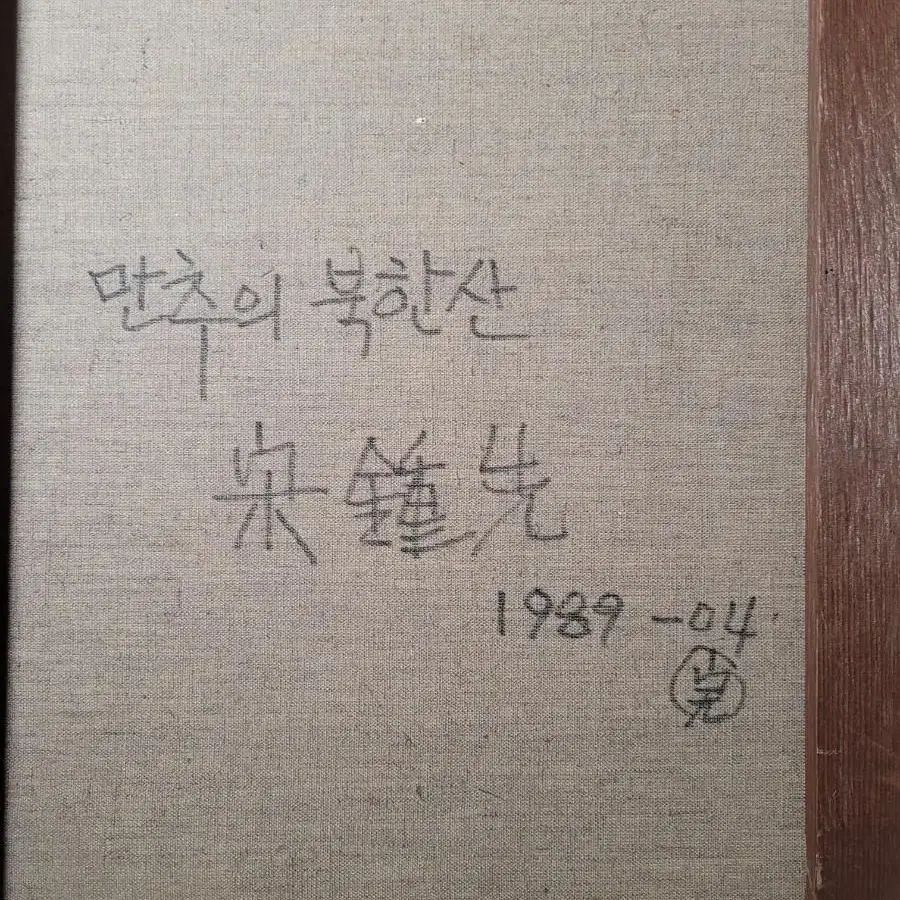 만추의 북한산
宋鍾先
1989 -04
完